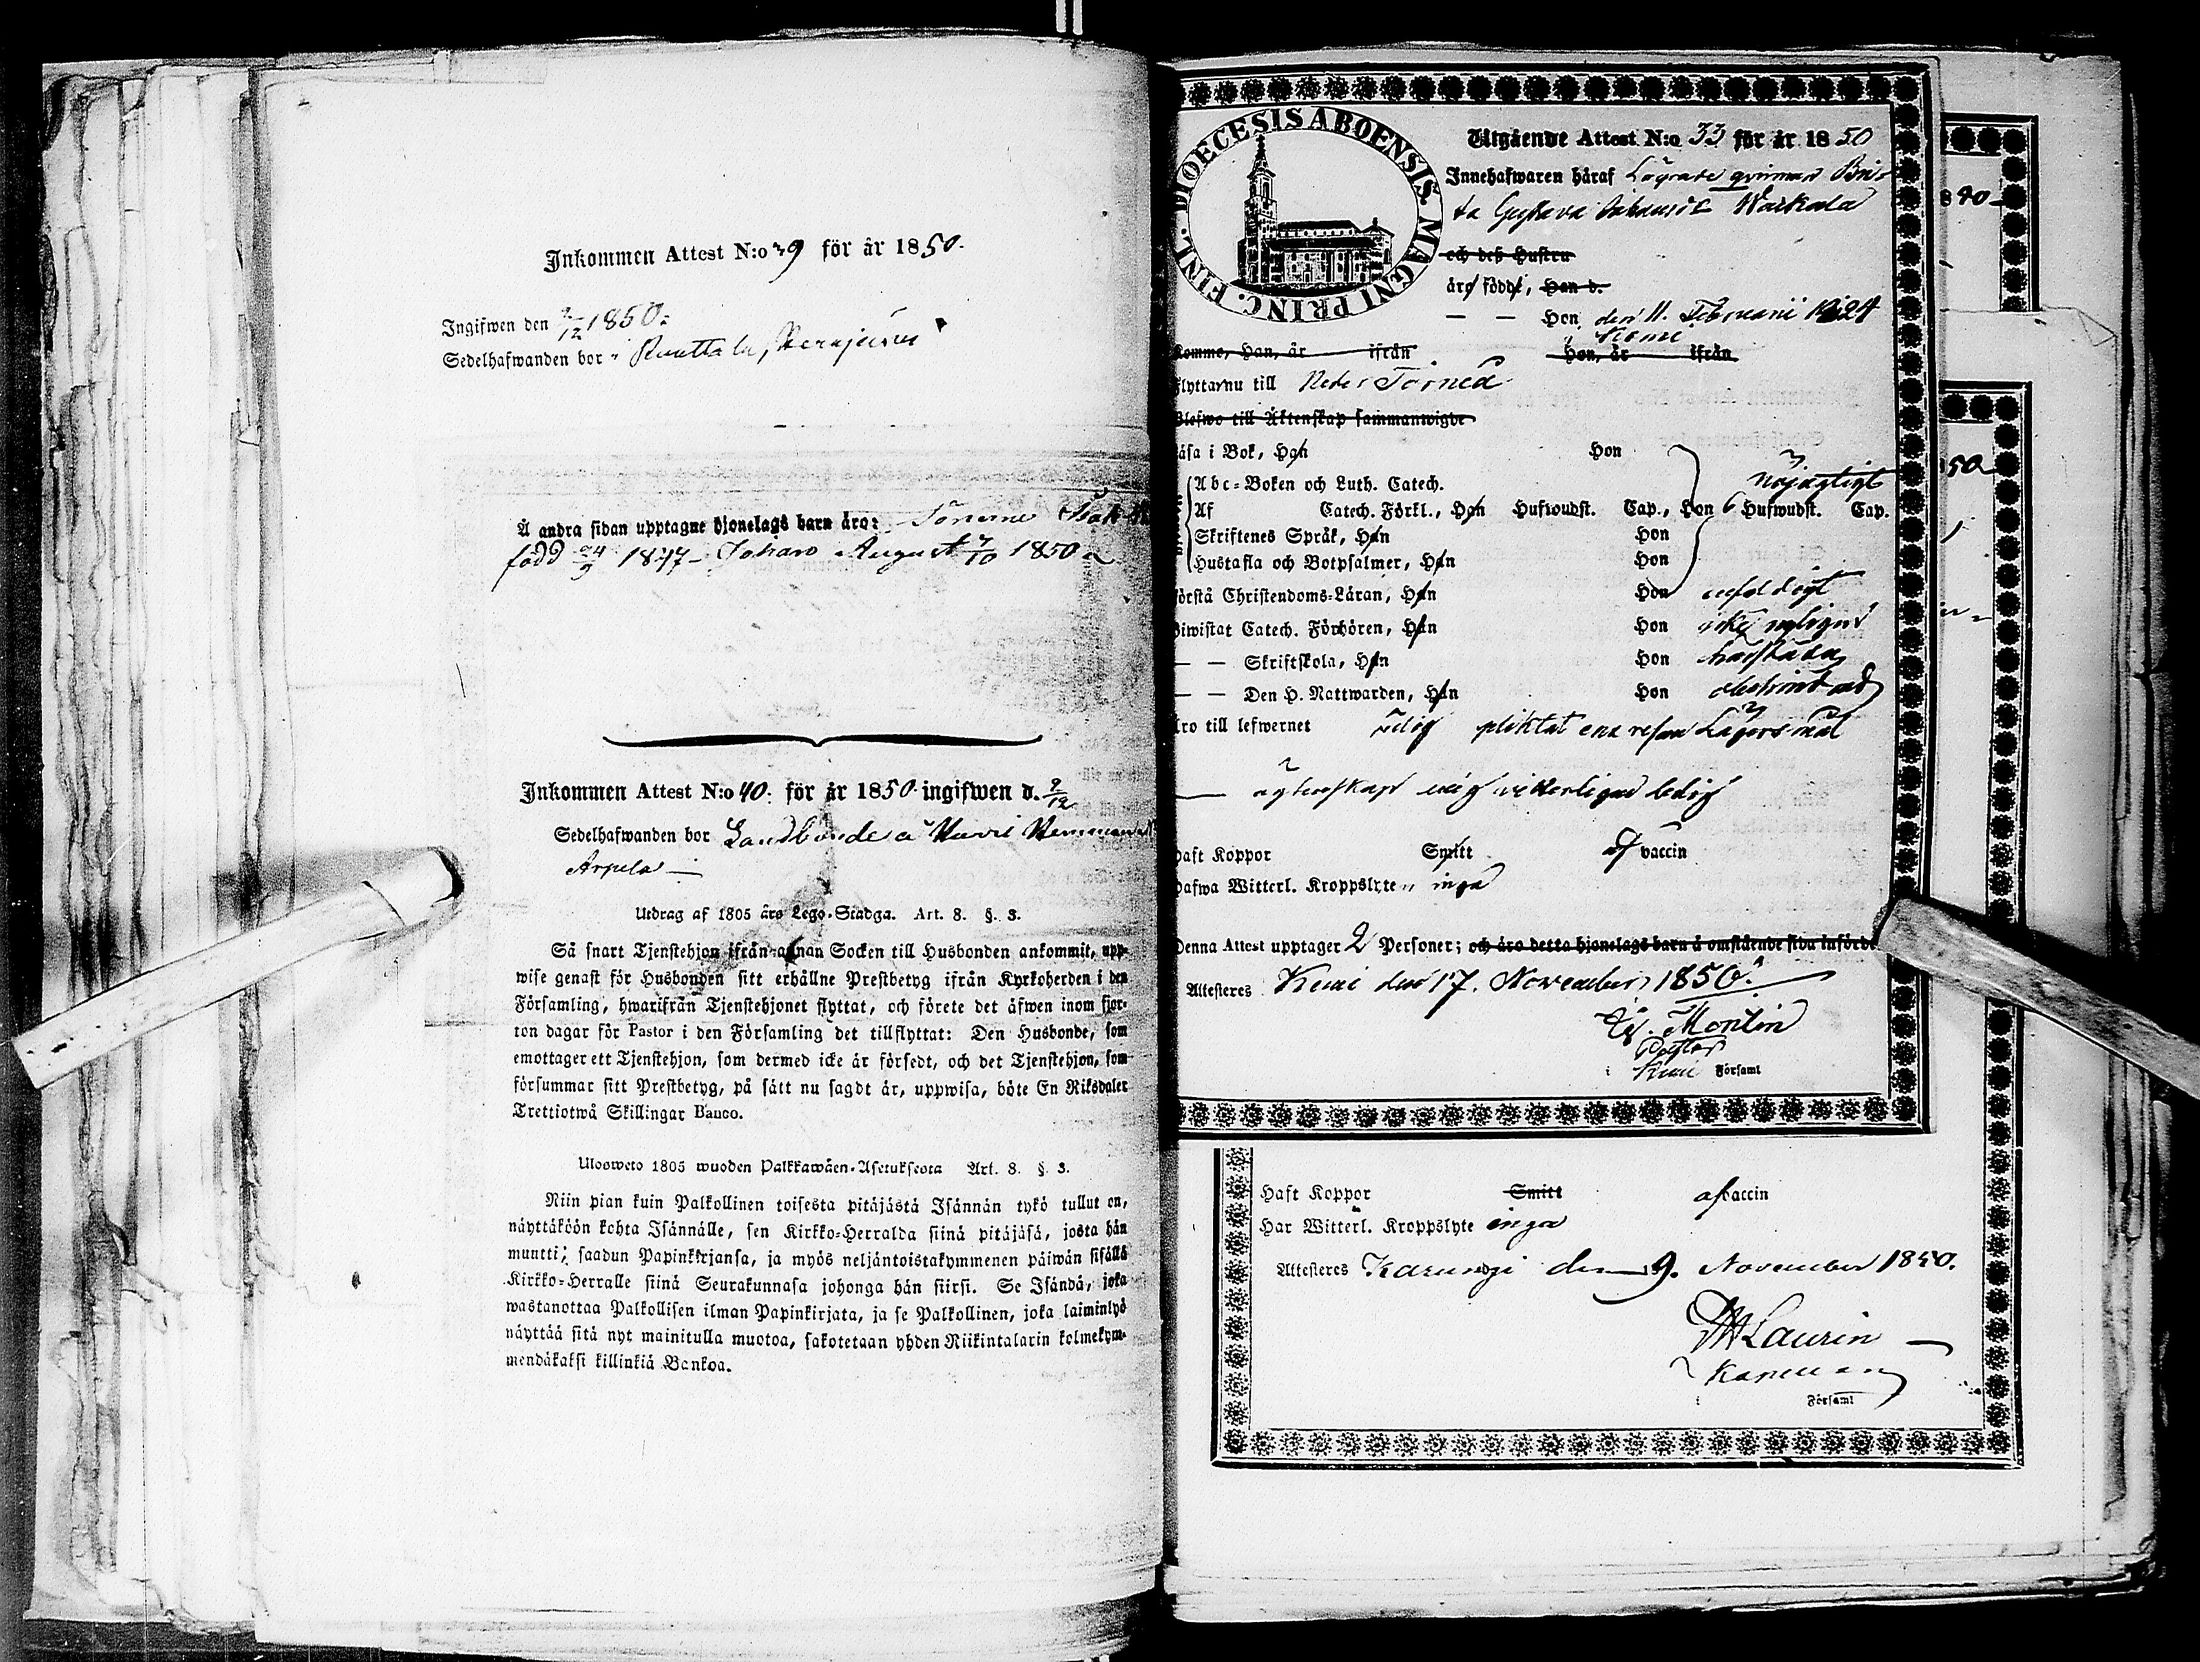 Inkommen Attest N:o 39 för år 1850.
Ingifwen den 2/12 1850.
Sedelhafwanden bor i Ruottala
Å andra sidan upptagne hjonelags barn äro: Sönerne Isak
född 24/9 1847 Johan August 7/10 1850
Inkommen Attest N:o 40: för år 1850 ingifwen d. 2/12
Sedelhafwanden bor Landbonde å
Arpela
Utdrag af 1805 års Lego-Stadga. Art. 8. §. 3.
Så snart Tjenstehjon ifrån annan Socken till Husbonden ankommit, upp-
wise genast för Husbonden sitt erhållne Prestbetyg ifrån Kyrkoherden i den
Församling, hwarifrån Tjenstehjonet flyttat, och förete det äfwen inom fjor-
ton dagar för Pastor i den Församling det tillflyttat: Den Husbonde, som
emottager ett Tjenstehjon, som dermed icke är försedt, och det Tjenstehjon, som
försummar sitt Prestbetyg, på sätt nu sagdt är, uppwisa, böte En Riksdaler
Trettiotwå Skillingar Banco.
Ulosweto 1805 wuoden Palkkawäen-Asetuksesta Art. 8. §. 3.
Niin pian kuin Palkollinen toisesta pitäjästä Isännän tykö tullut on,
näyttäköön kohta Isännälle, sen Kirkko-Herralda siinä pitäjäsä, josta hän
muutti, saadun Papinkirjansa, ja myös neljäntoistakymmenen päiwän sisällä
Kirkko-Herralle siinä Seurakunnasa johonga hän siirsi. Se Isändä, joka
wastanottaa Palkollisen ilman Papinkirjata, ja se Palkollinen, joka laiminlyö
näyttää sitä nyt mainitulla muotoa, sakotetaan yhden Riikintalarin kolmekym-
mendäkaksi killinkiä Bankoa.
DIOECESIS ABOENSIS. MAGNI PRINC. FINL.
Utgående Attest N:o 33 för år 1850
Innehafwaren häraf Lägrade qvinnan Bri-
ta Gustava Wackala
och deß Hustru
äro födde, Han d.
— — Hon, den 11. Februarii 1824
i Kemi
Komme, Han, år ifrån Hon, år ifrån
flyttarnu till Neder Torneå
Blefwo till Äktenskap sammanwigde
Läsa i Bok, Han Hon
Abc-Boken och Luth. Catech. nöjagtigt
Af Catech. Förkl., Han Hufwudst. Cap., Hon 6 Hufwudst. Cap.
Skriftenes Språk, Han Hon
Hustafla och Botpsalmer, Han Hon
Förstå Christendoms-Läran, Han Hon enfaldigt
Biwistat Catech. Förhören, Han Hon icke nyligen
— — Skriftskola, Han Hon härstädes
— — Den H. Nattwarden, Han Hon obehindrad
Äro till lefwernet pliktat ena resan Lägersmål
— ägtenskap veterligen ledig
Haft Koppor Smitt af vaccin
Hafwa Witterl. Kroppslyten inga
Denna Attest upptager 2 Personer; och äro detta hjonelags barn å omstående sida införde
Attesteres Kemi den 17. November 1850.
Montin
Pastor
i Kemi Församl
Haft Koppor Smitt af vaccin
Har Witterl. Kroppslyte inga
Attesteres Karungi den 9. November 1850.
Laurin
i Församl